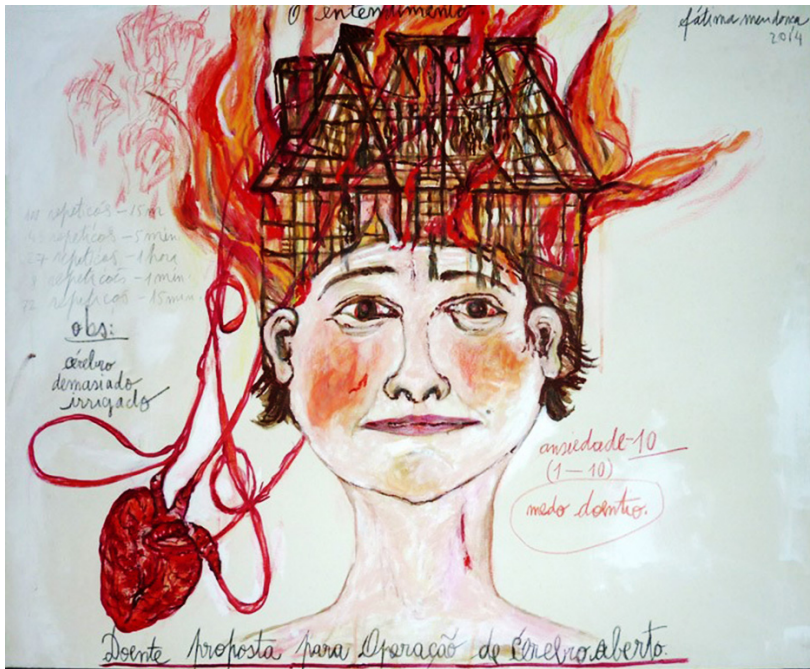 O entendimento
fátima mendonça
2014
repetições – 15m
repetições – 5 min
57 repetições – 1 hora
repetições – 1 min
72 repetições – 15 min.
obs:
cérebro
demasiado
irrigado
ansiedade-10
(1 – 10)
medo dentro.
Doente proposta para Operação de Cérebro aberto.